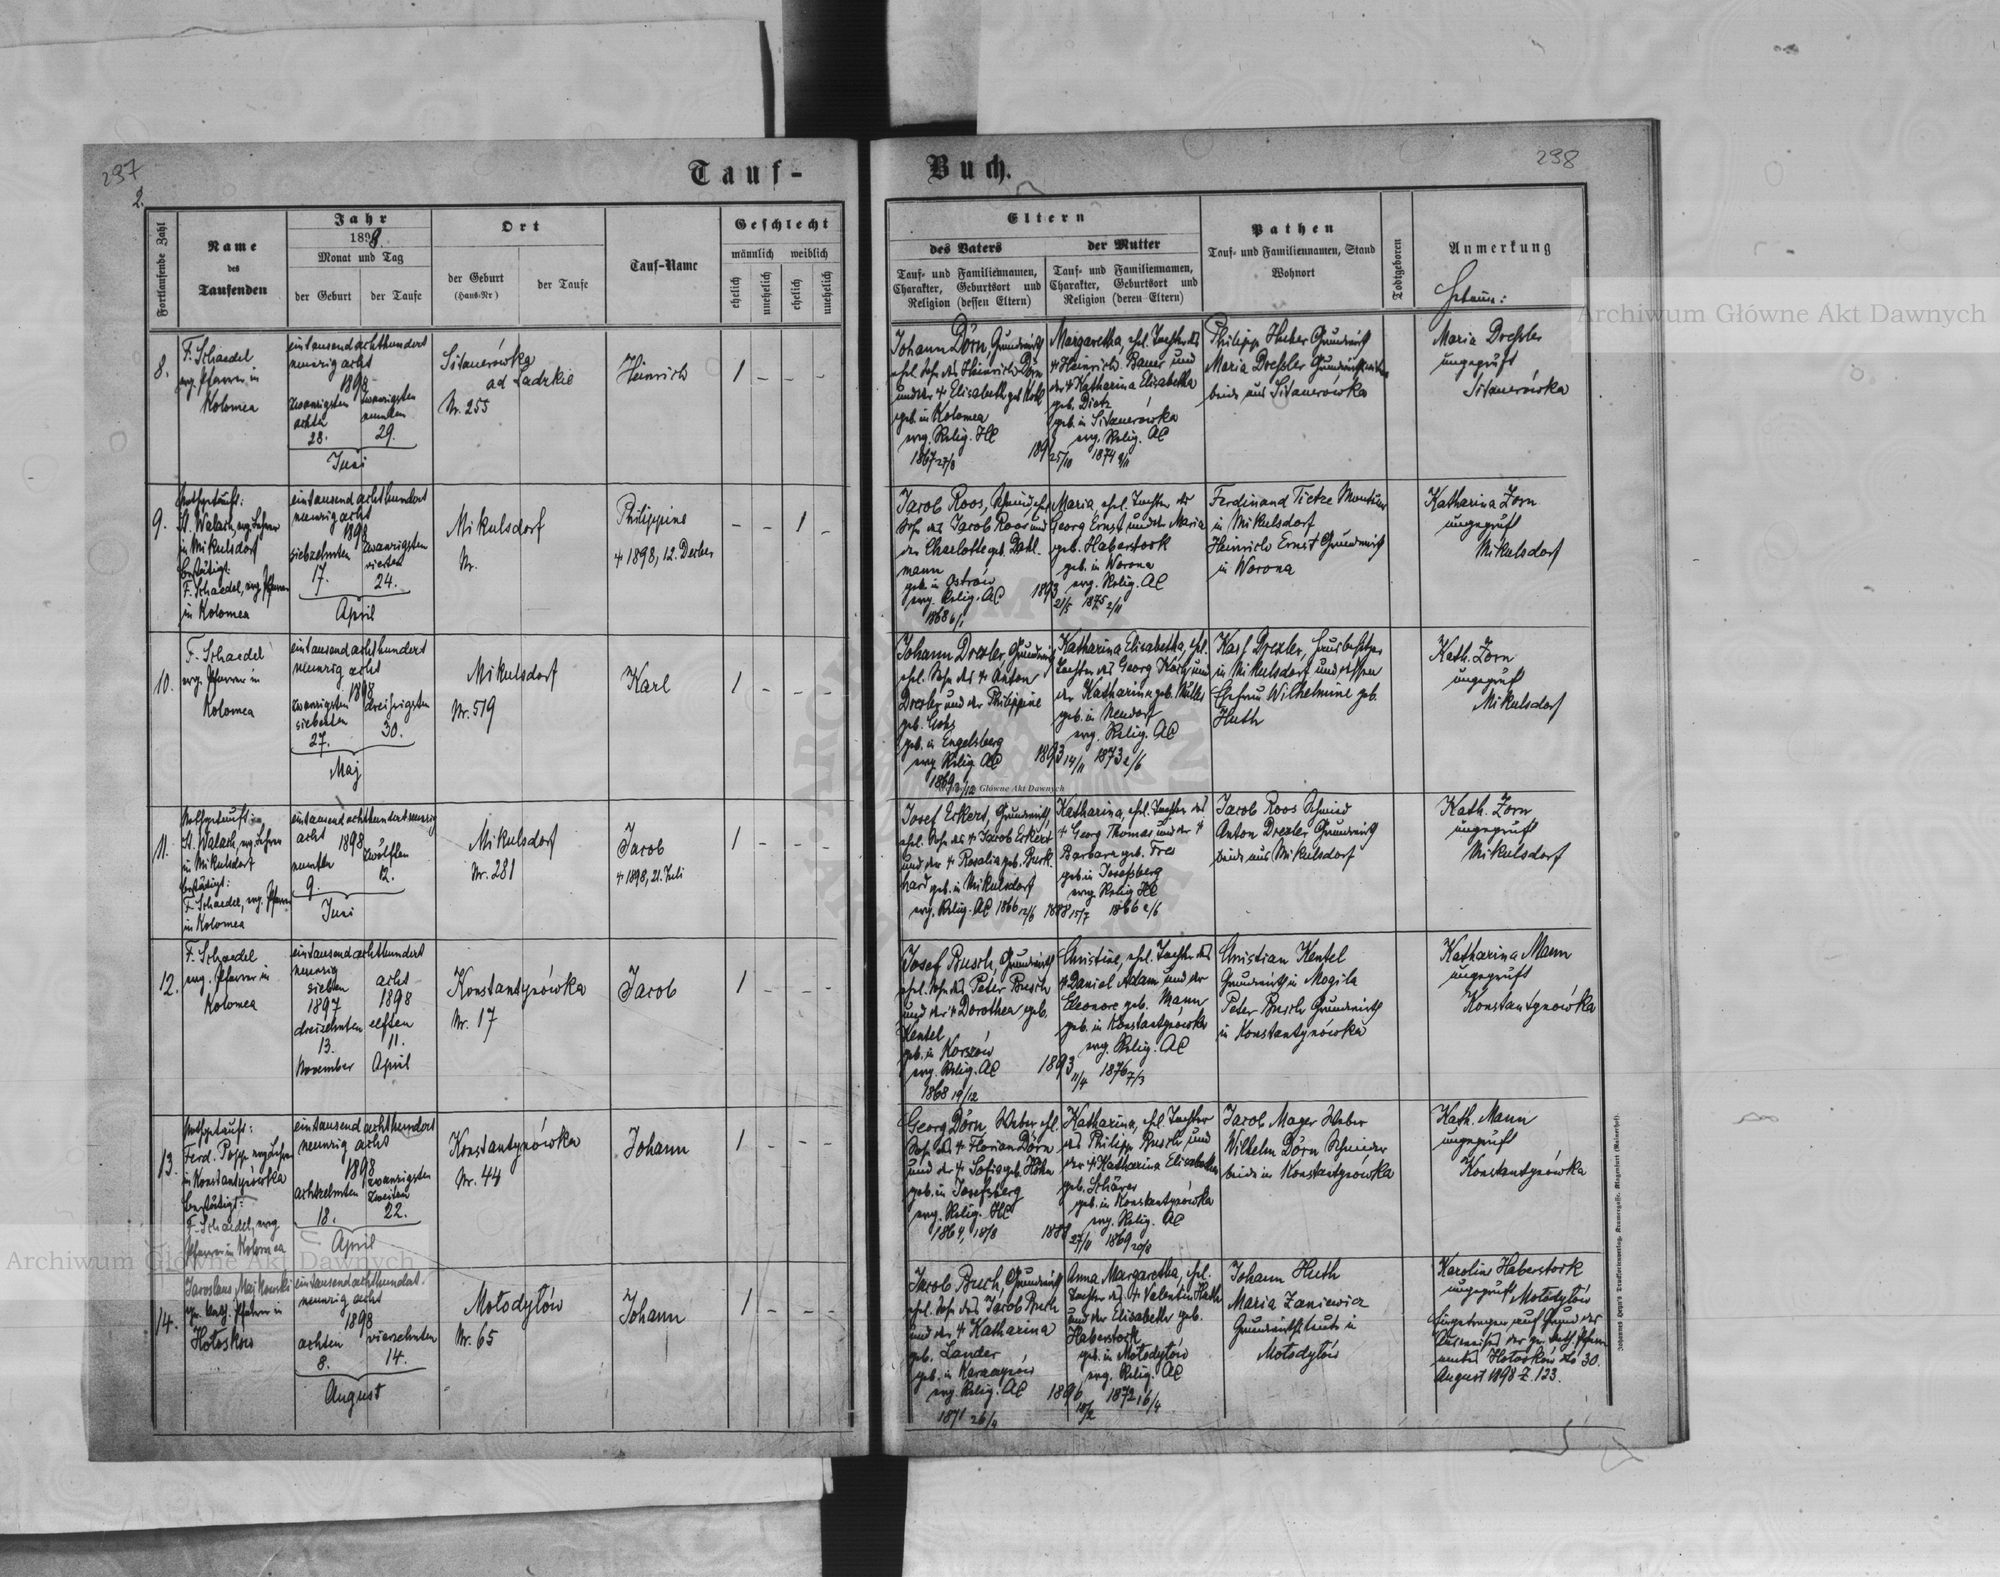 297
2.
Tauf-
Buch.
298
Fortlaufende Zahl
Name
des
Taufenden
Jahr
1898
Monat und Tag
der Geburt
der Taufe
Ort
der Geburt
(Haus-Nr)
der Taufe
Tauf-Name
Geschlecht
männlich
weiblich
ehelich
unehelich
ehelich
unehelich
Eltern
des Vaters
Tauf- und Familiennamen,
Charakter, Geburtsort und
Religion (dessen Eltern)
der Mutter
Tauf- und Familiennamen,
Charakter, Geburtsort und
Religion (deren Eltern)
Pathen
Tauf- und Familiennamen, Stand
Wohnort
Todtgeboren
Anmerkung
Hebame:
8.
F. Schaedel
evg. Pfarrer in
Kolomea
eintausend achthundert
neunzig acht
1898
zwanzigsten
achten
28.
zwanzigsten
neunten
29.
Juni
Sitauerówka
ad Ładzkie
Nr. 255
Heinrich
1 – – –
Johann Dörn, Grundwirt
ehel. Sohn des Heinrich Dörn
und der † Elisabeth geb.
geb. in Kolomea
evg. Relig. HC
1867 27/8
Margaretha, ehel. Tochter des
† Heinrich Bauer und
der † Katharina Elisabetha
geb. Dietz
geb. in Sitauerówka
evg. Relig. AC
25/10 1874 9/11
Philipp Huber Grundwirt
Maria Drechsler
beide aus Sitauerówka
Maria Drechsler
ungeprüft
Sitauerówka
9.
Nothgetauft:
St. Walach, evg. Lehrer
in Mikulsdorf
bestätigt:
F. Schaedel, evg. Pfarrer
in Kolomea
eintausend achthundert
neunzig acht
1898
siebzehnten
17.
zwanzigsten
vierten
24.
April
Mikulsdorf
Nr.
Philippine
† 1898, 12. Dezber
– – 1 –
Jacob Roos, Schmied, ehel.
Sohn des Jacob Roos und
der Charlotte geb. Dahl-
mann
geb. in Ostrów
evg. Relig. AC
1868 6/1
Maria ehel. Tochter des
Georg Ernst und der Maria
geb. Haberstock
geb. in Worona
evg. Relig. AC
1893 21/5 1875 2/11
Ferdinand Tietze Monteur
in Mikulsdorf
Heinrich Ernst Grundwirt
in Worona
Katharina Zorn
ungeprüft
Mikulsdorf
10.
F. Schaedel
evg. Pfarrer in
Kolomea
eintausend achthundert
neunzig acht
1898
zwanzigsten
siebenten
27.
dreißigsten
30.
Maj
Mikulsdorf
Nr. 519
Karl
1 – – –
Johann Drexler, Grundwirt
ehel. Sohn des † Anton
Drexler und der Philippine
geb.
geb. in Engelsberg
evg. Relig. AC
1869 2/12
Katharina Elisabetha, ehel.
Tochter des Georg Korg und
der Katharina geb. Müller
geb. in Neudorf
evg. Relig. AC
1893 14/11 1873 2/6
Karl Drexler, Hausbesitzer
in Mikulsdorf und dessen
Ehefrau Wilhelmine geb.
Huth
Kath. Zorn
ungeprüft
Mikulsdorf
11.
Nothgetauft:
St. Walach, evg. Lehrer
in Mikulsdorf
bestätigt:
F. Schaedel, evg. Pfarrer
in Kolomea
eintausend achthundert neunzig
acht 1898
neunten
9
zwölften
12.
Juni
Mikulsdorf
Nr. 281
Jacob
† 1898, 21. Juli
1 – – –
Josef Erkert, Grundwirt,
ehel. Sohn des † Jacob Erkert
und der † Rosalia geb. Burk-
hard geb. in Mikulsdorf
evg. Relig. AC 1866 12/6
Katharina, ehel. Tochter des
† Georg Thomas und der †
Barbara geb. Frei
geb. in Josefsberg
evg. Relig. HC
1888 15/7 1866 2/6
Jacob Roos Schmied
Anton Drexler Grundwirt
beide aus Mikulsdorf
Kath. Zorn
ungeprüft
Mikulsdorf
12.
F. Schaedel
evg. Pfarrer in
Kolomea
eintausend achthundert
neunzig
sieben
1897
dreizehnten
13.
November
acht
1898
elften
11.
April
Konstantynówka
Nr. 17
Jacob
1 – – –
Josef Busch, Grundwirt
ehel. Sohn des Peter Busch
und der † Dorothea geb.
Kentel
geb. in Korszów
evg. Relig. AC
1868 19/12
Christine, ehel. Tochter des
† Daniel Adam und der
Eleonore geb. Mann
geb. in Konstantynówka
evg. Relig. AC
1893 11/4 1876 7/3
Christian Kentel
Grundwirt in Mogila
Peter Busch Grundwirt
in Konstantynówka
Katharina Mann
ungeprüft
Konstantynówka
13.
Nothgetauft:
Ferd. Popp, evg. Lehrer
in Konstantynówka
bestätigt:
F. Schaedel, evg.
Pfarrer in Kolomea
eintausend achthundert
neunzig acht
1898
achtzehnten
18.
zwanzigsten
zweiten
22.
April
Konstantynówka
Nr. 44
Johann
1 – – –
Georg Dörn, Weber ehel.
Sohn des † Florian Dörn
und der † Sofia geb. Höhn
geb. in Josefsberg
evg. Relig. HC
1864, 18/8
Katharina, ehel. Tochter
des Philipp Busch und
der † Katharina Elisabetha
geb. Schärer
geb. in Konstantynówka
evg. Relig. AC
1888 27/11 1869 20/8
Jacob Mager Weber
Wilhelm Dörn Schneider
beide in Konstantynówka
Kath. Mann
ungeprüft
Konstantynówka
14.
Jaroslaus Majkowski
gr. kath. Pfarrer in
Hołoskow
eintausend achthundert
neunzig acht
1898
achten
8.
vierzehnten
14.
August
Mołodyłów
Nr. 65
Johann
1 – – –
Jacob Buch, Grundwirt
ehel. Sohn des Jacob Buch
und der † Katharina
geb. Lander
geb. in
evg. Relig. AC
1871 26/9
Anna Margaretha, ehel.
Tochter des † Valentin Huth
und der Elisabeth geb.
Haberstock
geb. in Mołodyłów
evg. Relig. AC
1896 18/2 1872 16/4
Johann Huth
Maria Zaniewicz
Grundwirtsleute in
Mołodyłów
Karolin Haberstock
ungeprüft, Mołodyłów
Eingetragen auf Grund des
Ausweises des gr. kath. Pfarr-
amtes Hołosków dto 30.
August 1898 Z. 123.
Archiwum Główne Akt Dawnych
Archiwum Główne Akt Dawnych
Główne Akt Dawnych